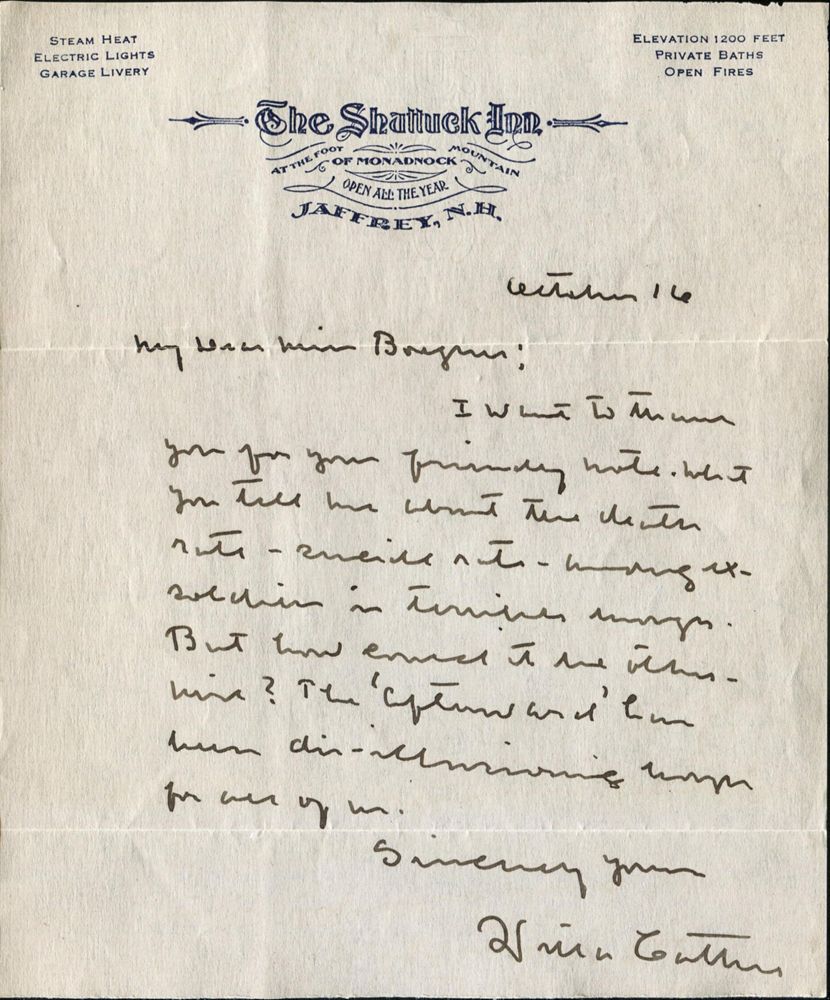 STEAM HEAT
ELECTRIC LIGHTS
GARAGE LIVERY
ELEVATION 1200 FEET
PRIVATE BATHS
OPEN FIRES
The Shattuck Inn
AT THE FOOT OF MONADNOCK MOUNTAIN
OPEN ALL THE YEAR
JAFFREY, N.H.
October 16
My Dear Miss
I want to thank
you for your friendly note. What
you tell me about the death
rate - suicide rate - among ex-
soldiers is terrible enough.
But how could it be other-
wise? The 'afterward' has
been dis-illusioning enough
for all of us.
Sincerely yours
Willa Cather